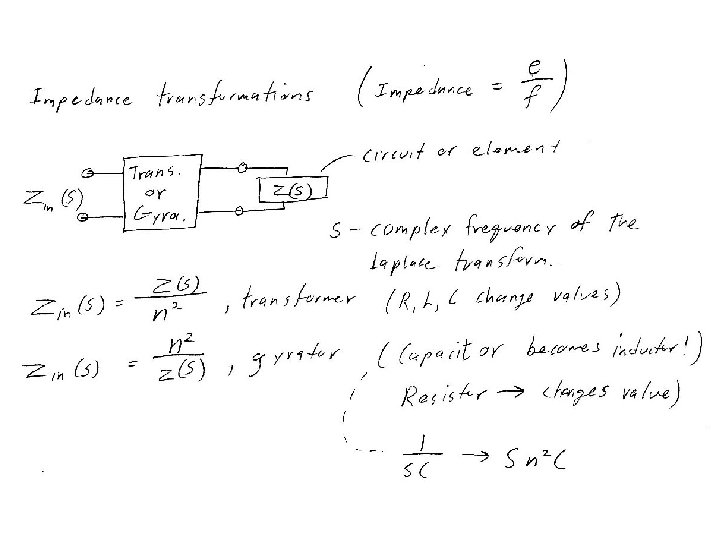 Impedance transformations (Impedance = e/f)
circuit or element
Trans.
or
Gyra.
Z(s)
Zin(s)
s - complex frequency of the
Laplace transform.
Zin(s) = Z(s)/n², transformer (R, L, C change values)
Zin(s) = n²/Z(s), gyrator (Capacitor becomes inductor!)
Resister → changes value)
1/sC → s n² C